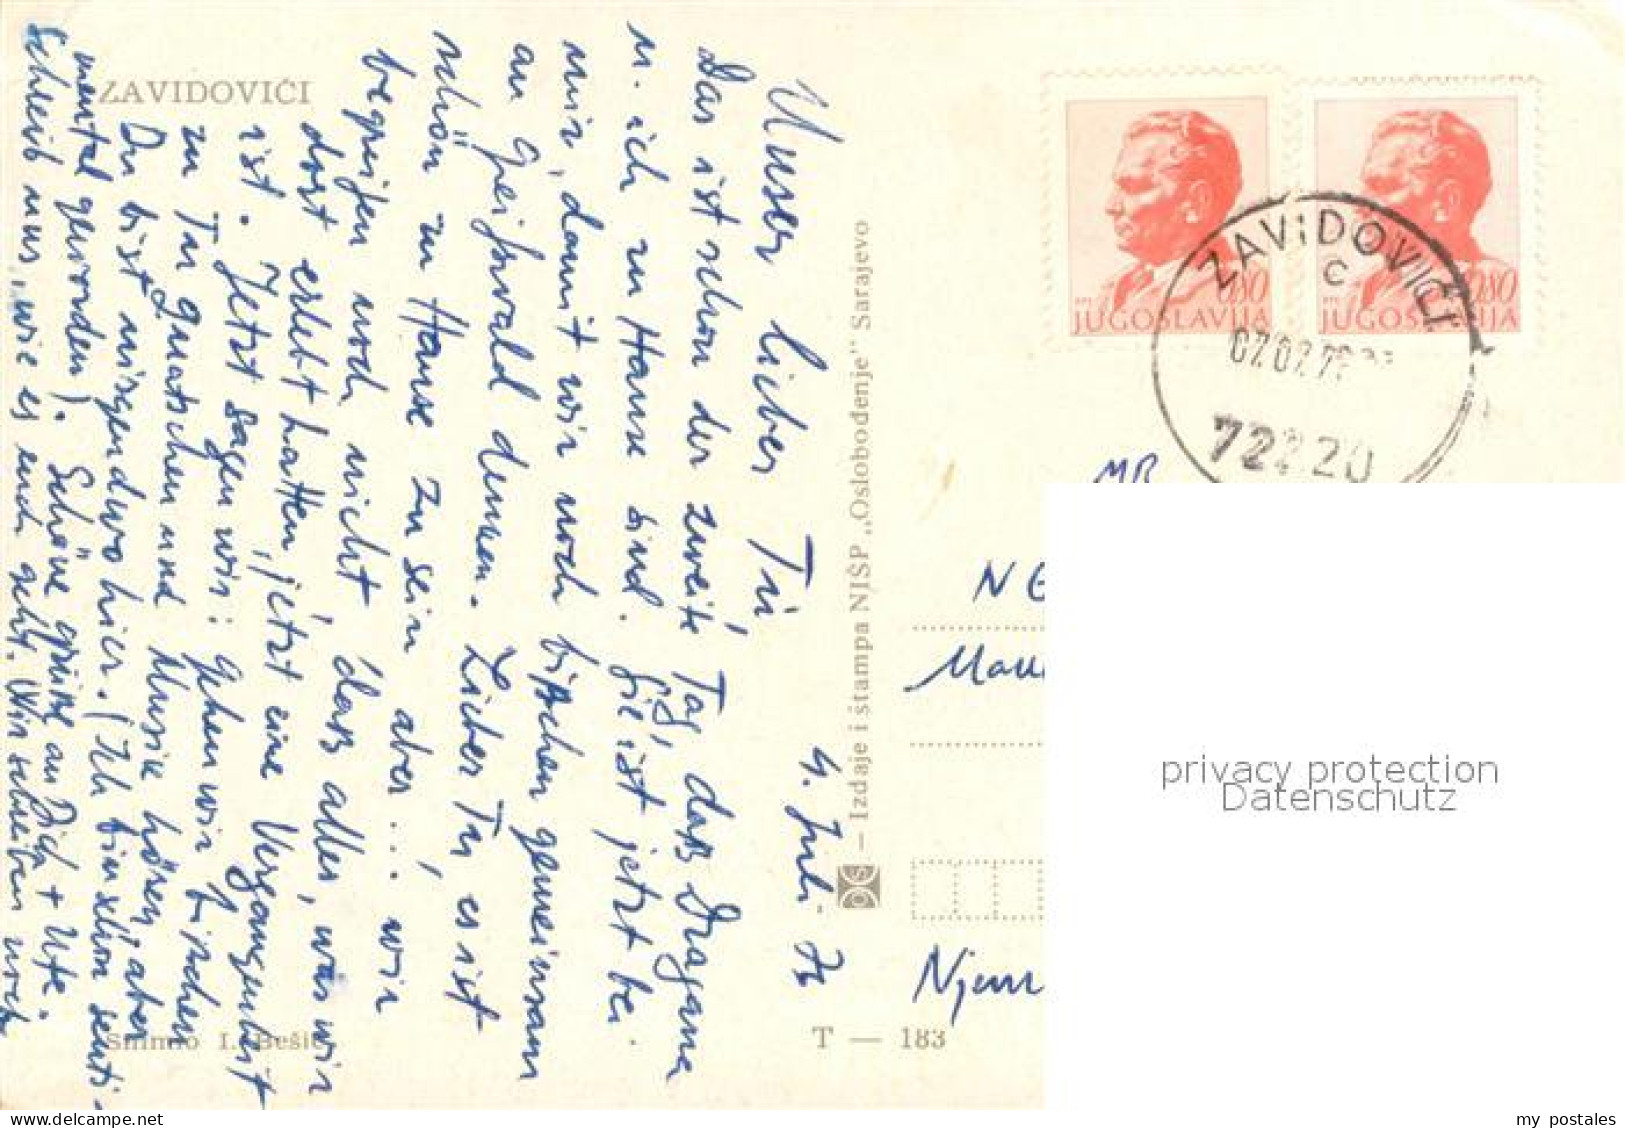 ZAVIDOVIĆI
Unser lieber Tu,
4. Juli
Das ist schon der zweite Tag, daß Dragana
u. ich zu Hause sind. Sie ist jetzt bei
mir, damit wir noch bißchen gemeinsam
an Greifswald denken. Lieber Tu, es ist
schön zu Hause zu sein, aber... wir
begreifen noch nicht, daß alles, was wir
dort erlebt hatten, jetzt eine Vergangenheit
ist. Jetzt sagen wir: Gehen wir bißchen
zu Tu quatschen und Musik hören, aber
Du bist nirgendwo hier. (Ich bin schon senti-
mental geworden). Schöne Grüße an Dich + Ute.
Schreib uns, wie es euch geht. Wir schreiben noch
Snimio I. Bešić
T — 183
— Izdaje i štampa NIŠP „Oslobođenje" Sarajevo
0,80
JUGOSLAVIJA
0,80
JUGOSLAVIJA
ZAVIDOVIĆI
C
72220
MR
privacy protection
Datenschutz
my postales